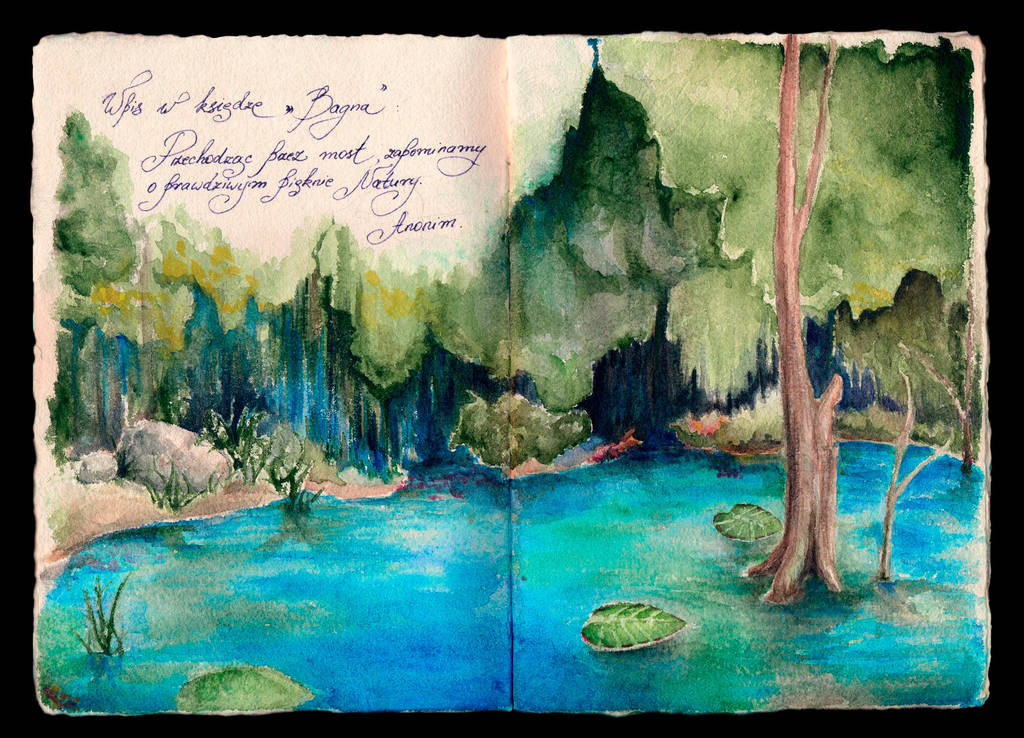 Wpis w księdze „Bagna”:
Przechodząc przez most, zapominamy
o prawdziwym pięknie Natury.
Anonim.